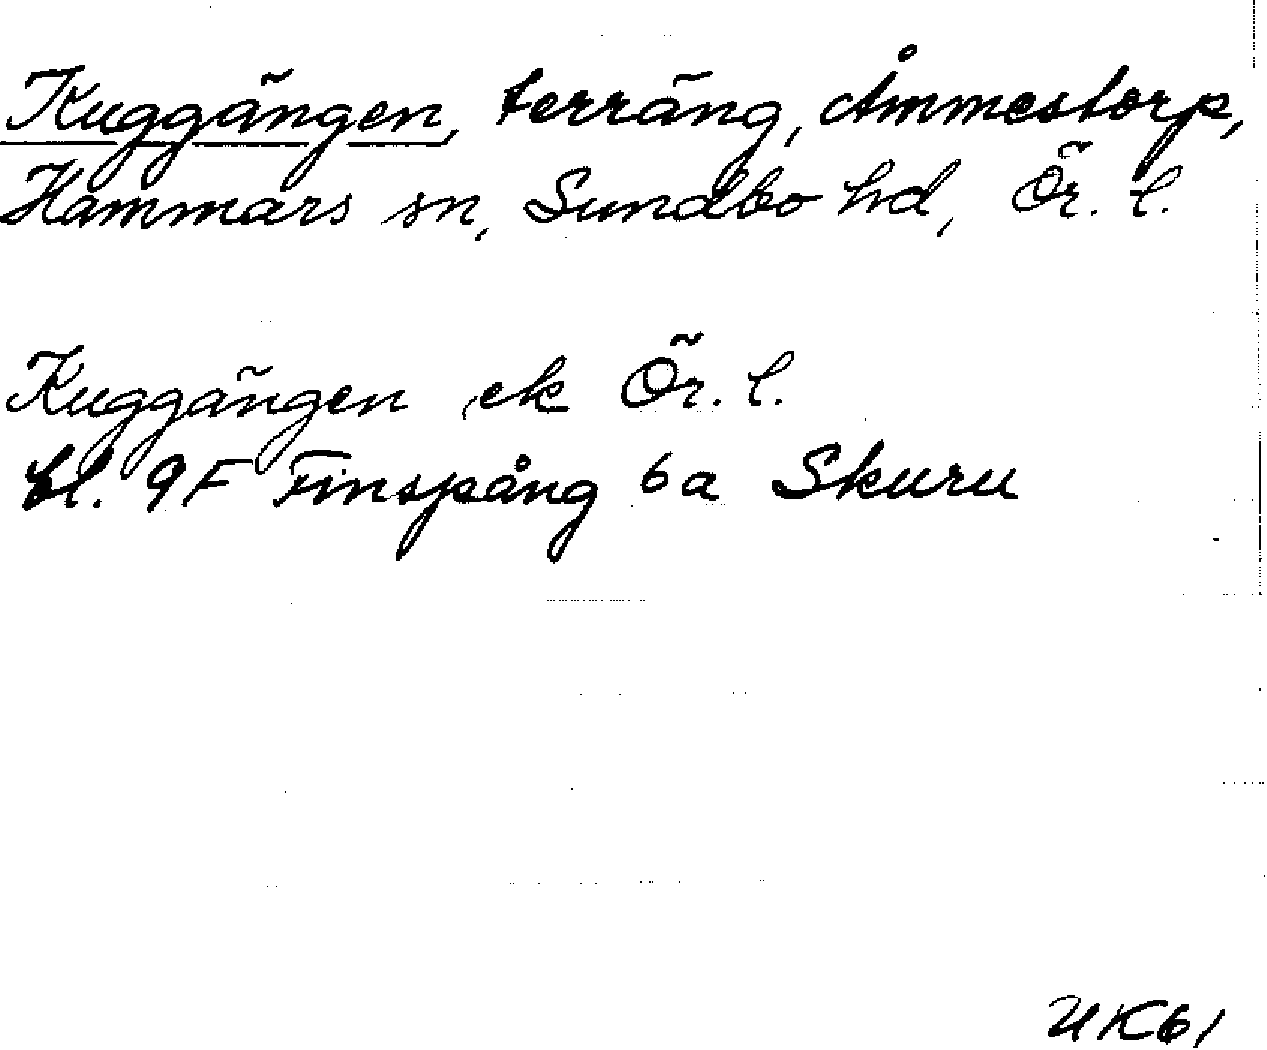 Kuggängen, terräng, Åmmestorp,
Hammars sn, Sundbo hd, Ör. l.
Kuggängen ek Ör. l.
bl. 9F Finspång 6a Skuru
UK61